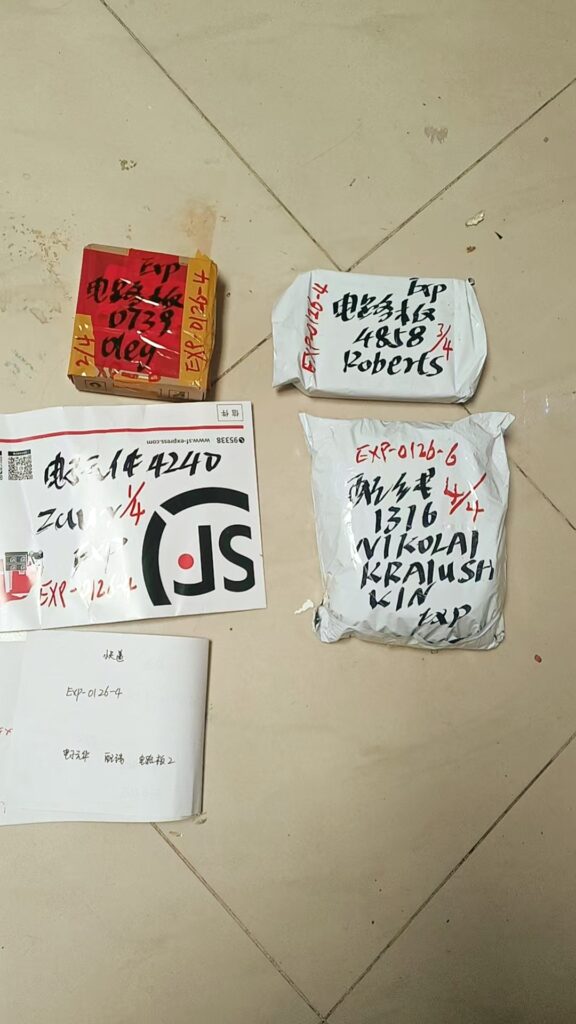 Exp
电路板
0739
oley
2/4
EXP-0126-4
Exp
电路板
4858
3/4
Roberts
EXP-0126-4
信件
95338 www.sf-express.com
4240
1/4
EXP
SF
EXP-0126-6
配线
4/4
1316
NIKOLAI
KRAIUSH
KIN
Exp
快递
EXP-0126-4
电子元件 配线 电路板2